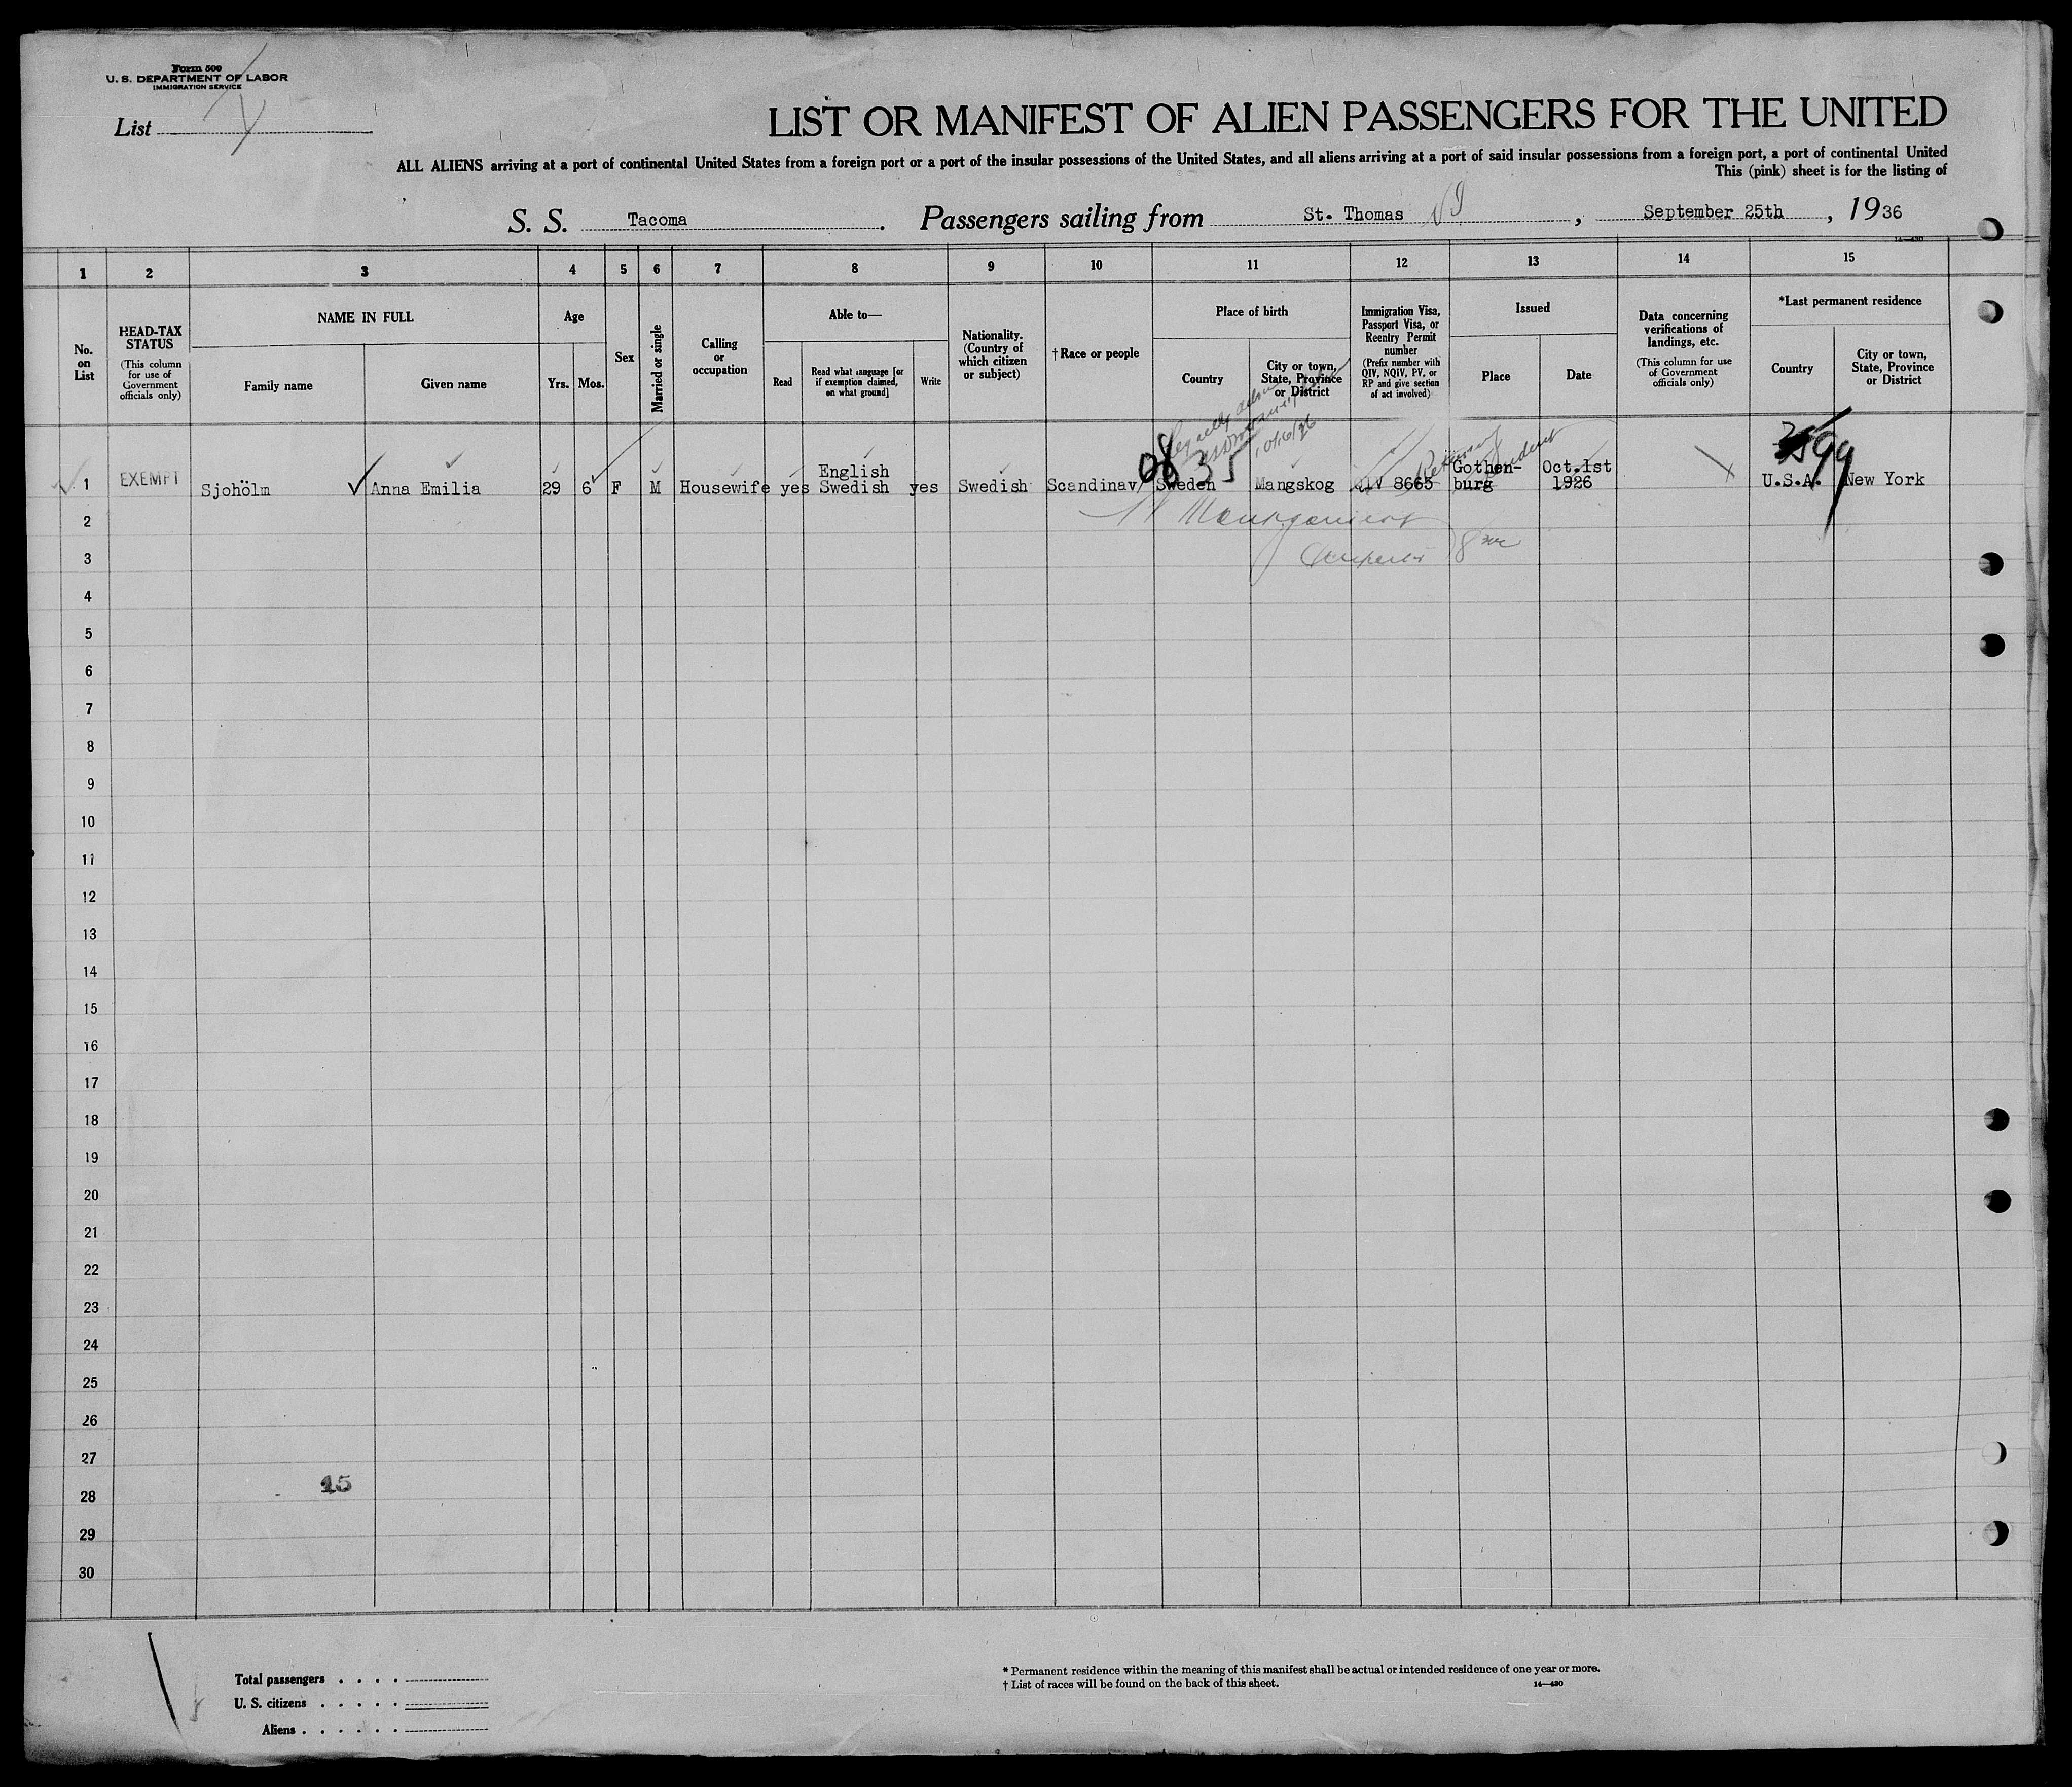 Form 500
U. S. DEPARTMENT OF LABOR
IMMIGRATION SERVICE
List
LIST OR MANIFEST OF ALIEN PASSENGERS FOR THE UNITED
ALL ALIENS arriving at a port of continental United States from a foreign port or a port of the insular possessions of the United States, and all aliens arriving at a port of said insular possessions from a foreign port, a port of continental United
This (pink) sheet is for the listing of
S. S. Tacoma . Passengers sailing from St. Thomas VI , September 25th , 1936
14—430
1 2 3 4 5 6 7 8 9 10 11 12 13 14 15
No. on List
HEAD-TAX STATUS
(This column for use of Government officials only)
NAME IN FULL
Family name
Given name
Age
Yrs.
Mos.
Sex
Married or single
Calling or occupation
Able to—
Read
Read what language [or if exemption claimed, on what ground]
Write
Nationality. (Country of which citizen or subject)
†Race or people
Place of birth
Country
City or town, State, Province or District
Immigration Visa, Passport Visa, or Reentry Permit number
(Prefix number with QIV, NQIV, PV, or RP and give section of act involved)
Issued
Place
Date
Data concerning verifications of landings, etc.
(This column for use of Government officials only)
*Last permanent residence
Country
City or town, State, Province or District
1 EXEMPT Sjoholm Anna Emilia 29 6 F M Housewife yes English Swedish yes Swedish Scandinav Sweden Mangskog QIV 8665 Gothen-burg Oct.1st 1926 U.S.A. New York
35
99
2
3
4
5
6
7
8
9
10
11
12
13
14
15
16
17
18
19
20
21
22
23
24
25
26
27
28
15
29
30
Total passengers . . . .
U. S. citizens . . . . .
Aliens . . . . . .
* Permanent residence within the meaning of this manifest shall be actual or intended residence of one year or more.
† List of races will be found on the back of this sheet.
14—430